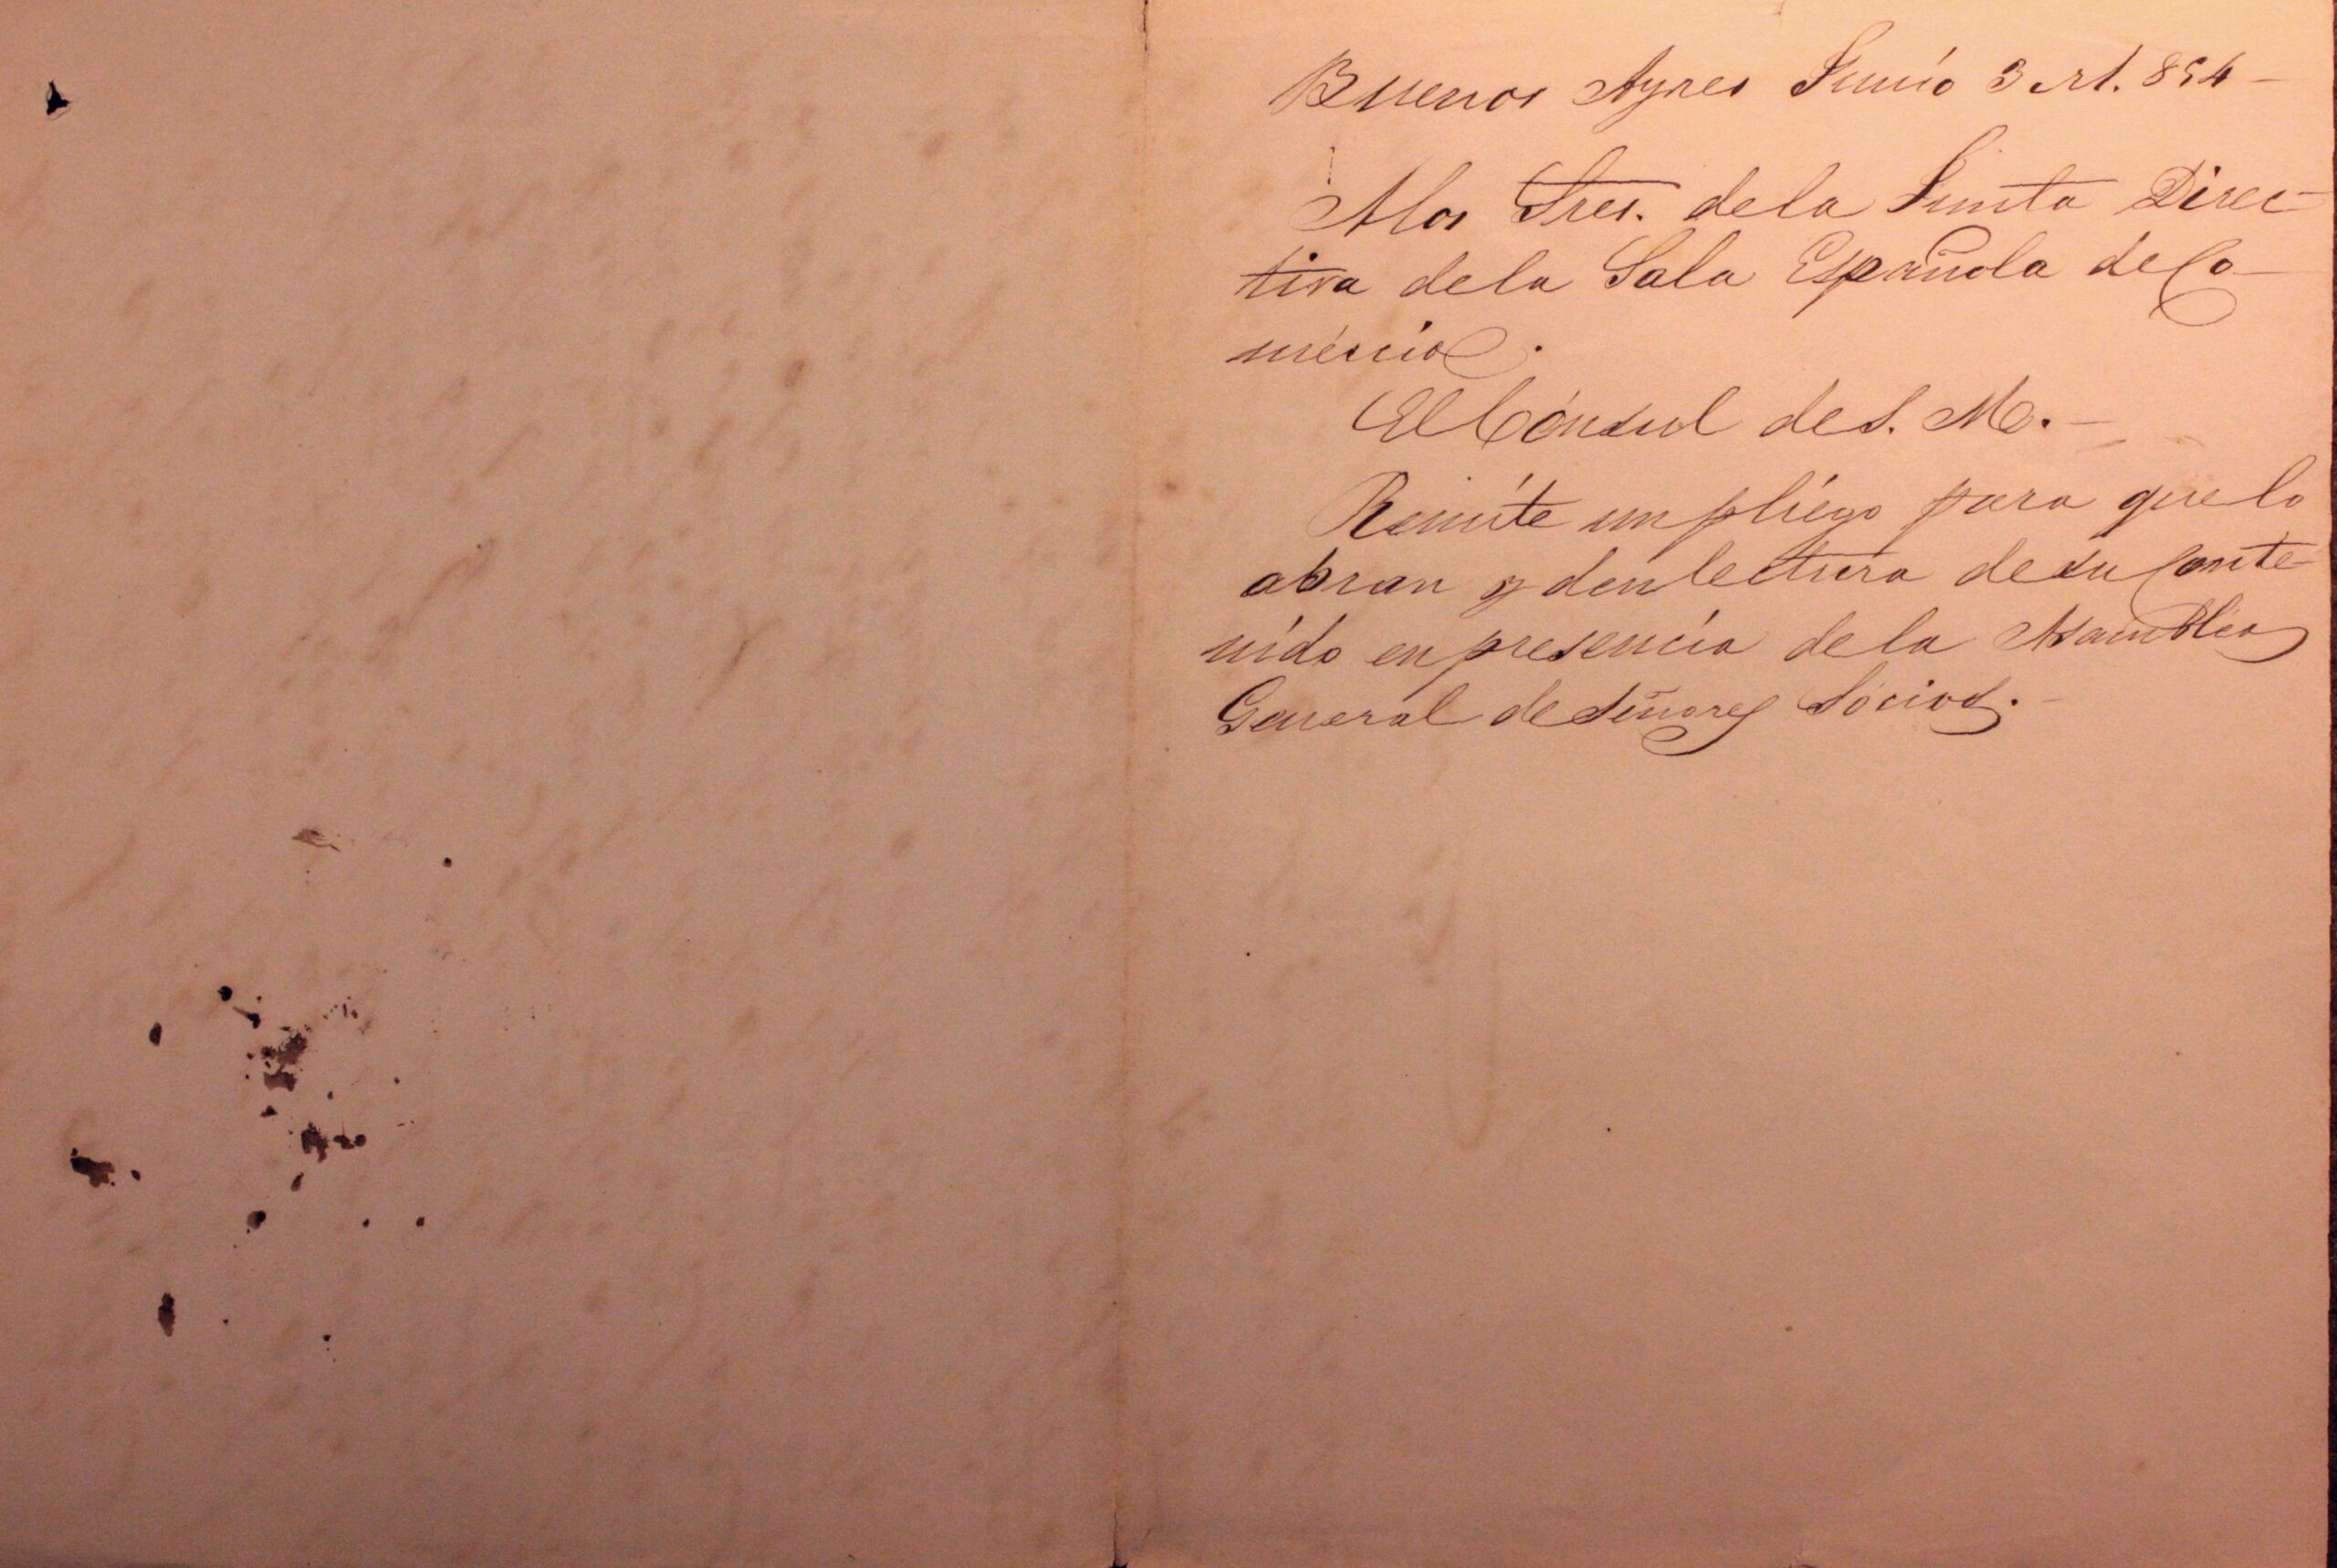 Buenos Ayres Junio 3 d1. 854 –
A los Sres. de la Junta Direc-
tiva de la Sala Española de Co-
mércio.
El Cónsul de S. M. –
Remíte un pliego para que lo
abran y den lectura de su Conte-
nido en presencia de la Asamblea
General de Señores Sócios. –